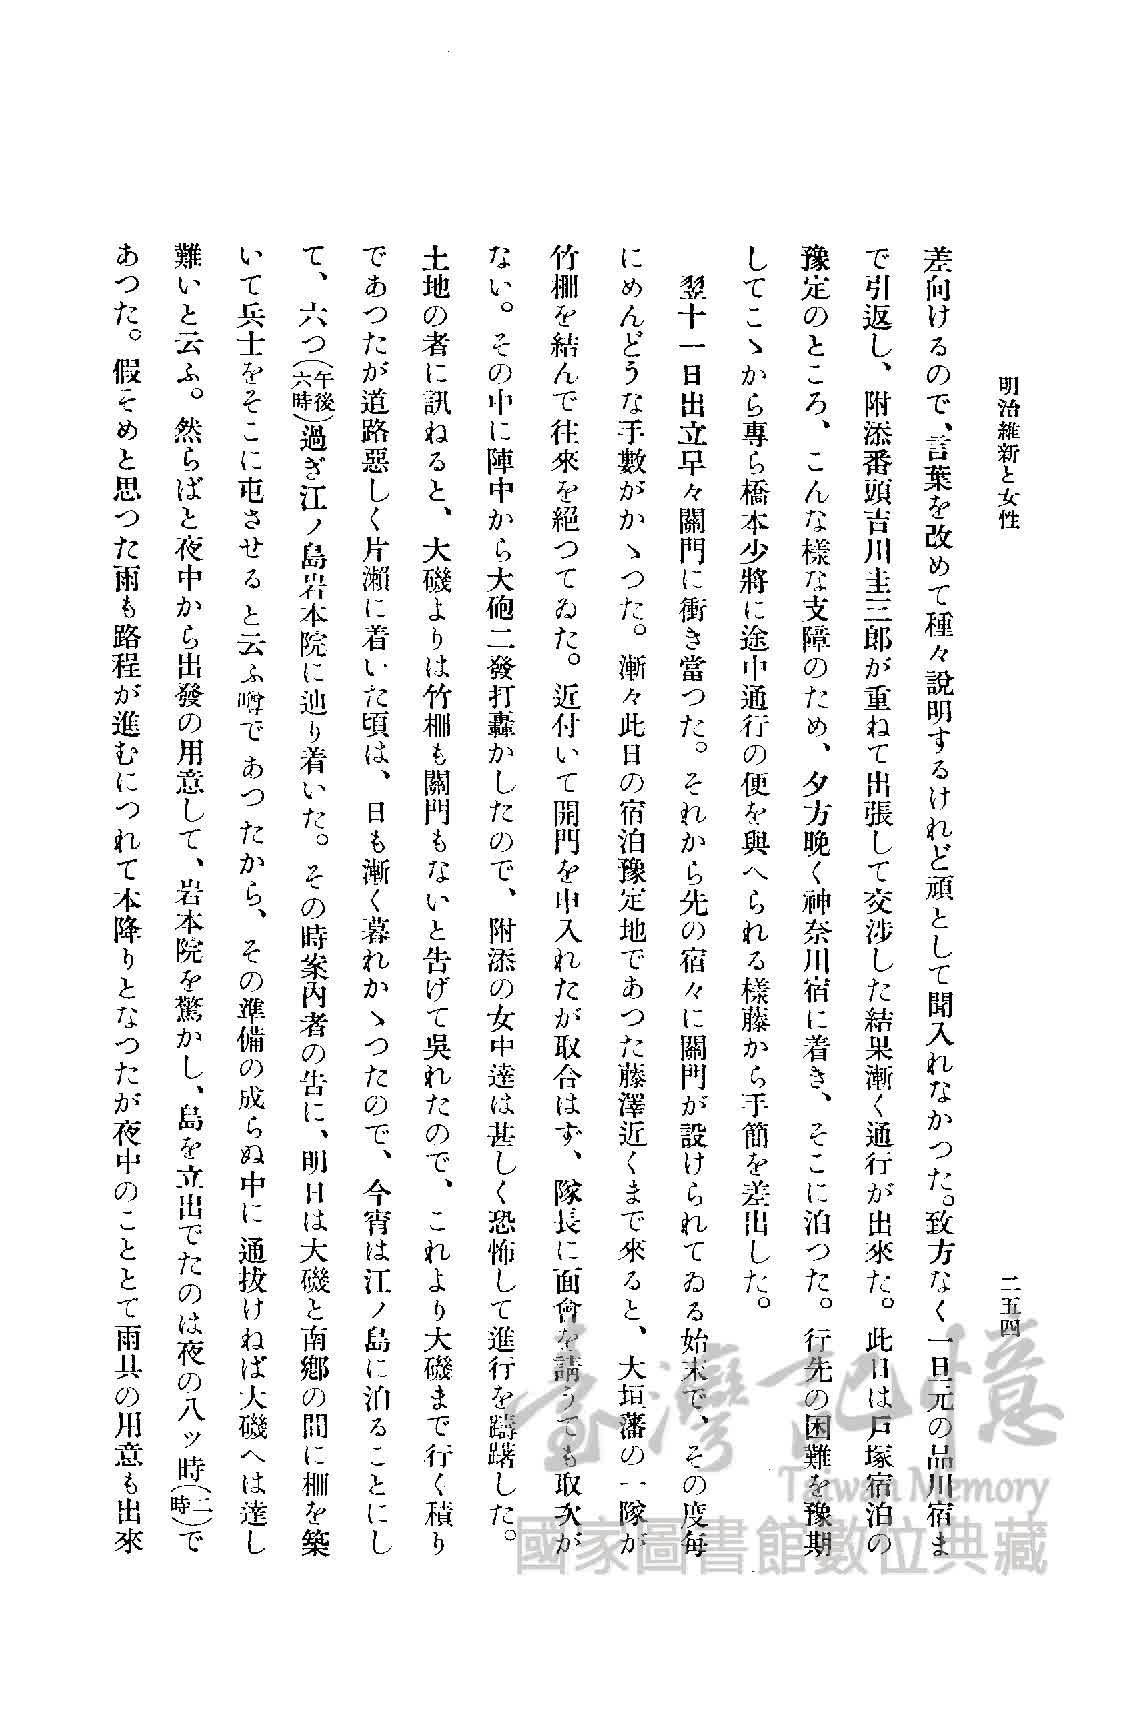 明治維新と女性
二五四
差向けるので、言葉を改めて種々說明するけれど頑として聞入れなかつた。致方なく一旦元の品川宿ま
で引返し、附添番頭吉川圭三郎が重ねて出張して交涉した結果漸く通行が出來た。此日は戶塚宿泊の
豫定のところ、こんな樣な支障のため、夕方晚く神奈川宿に着き、そこに泊つた。行先の困難を豫期
してこゝから專ら橋本少將に途中通行の便を與へられる樣藤から手簡を差出した。
翌十一日出立早々關門に衝き當つた。それから先の宿々に關門が設けられてゐる始末で、その度每
にめんどうな手數がかゝつた。漸々此日の宿泊豫定地であつた藤澤近くまで來ると、大垣藩の一隊が
竹柵を結んで往來を絕つてゐた。近付いて開門を申入れたが取合はず、隊長に面會を請うても取次が
ない。その中に陣中から大砲二發打轟かしたので、附添の女中達は甚しく恐怖して進行を躊躇した。
土地の者に訊ねると、大磯よりは竹柵も關門もないと告げて吳れたので、これより大磯まで行く積り
であつたが道路惡しく片瀨に着いた頃は、日も漸く暮れかゝつたので、今宵は江ノ島に泊ることにし
て、六つ(午後六時)過ぎ江ノ島岩本院に辿り着いた。その時案內者の告に、明日は大磯と南鄕の間に柵を築
いて兵士をそこに屯させると云ふ噂であつたから、その準備の成らぬ中に通拔けねば大磯へは達し
難いと云ふ。然らばと夜中から出發の用意して、岩本院を驚かし、島を立出でたのは夜の八ッ時(二時)で
あつた。假そめと思つた雨も路程が進むにつれて本降りとなつたが夜中のこととて雨具の用意も出來
臺灣記憶
Taiwan Memory
國家圖書館數位典藏